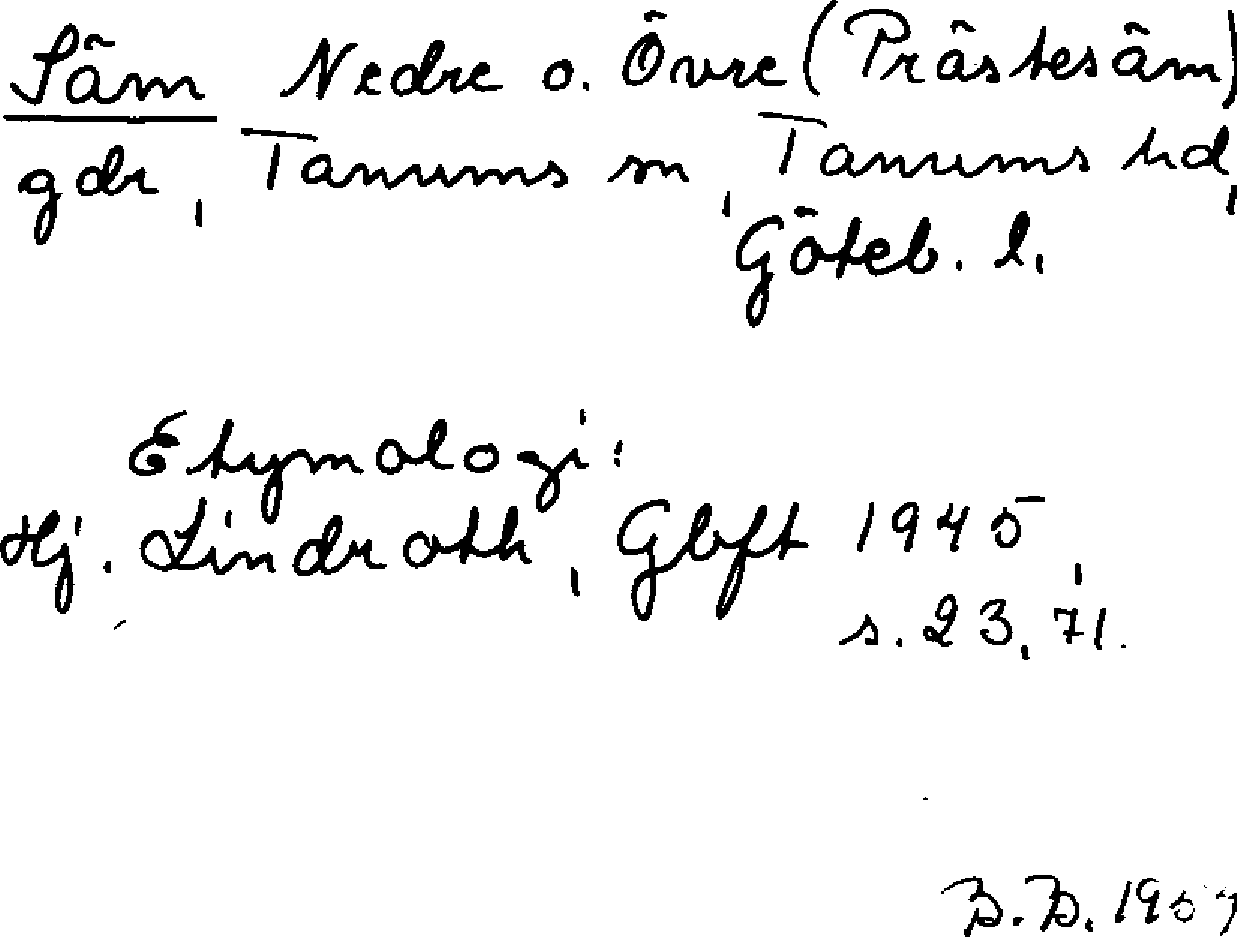 Säm Nedre o. Övre (Prästesäm)
gdr, Tanums sn, Tanums hd,
Göteb. l.
Etymologi:
Hj. Lindroth, Gbft 1945,
s. 23, 71.
B.B. 1957